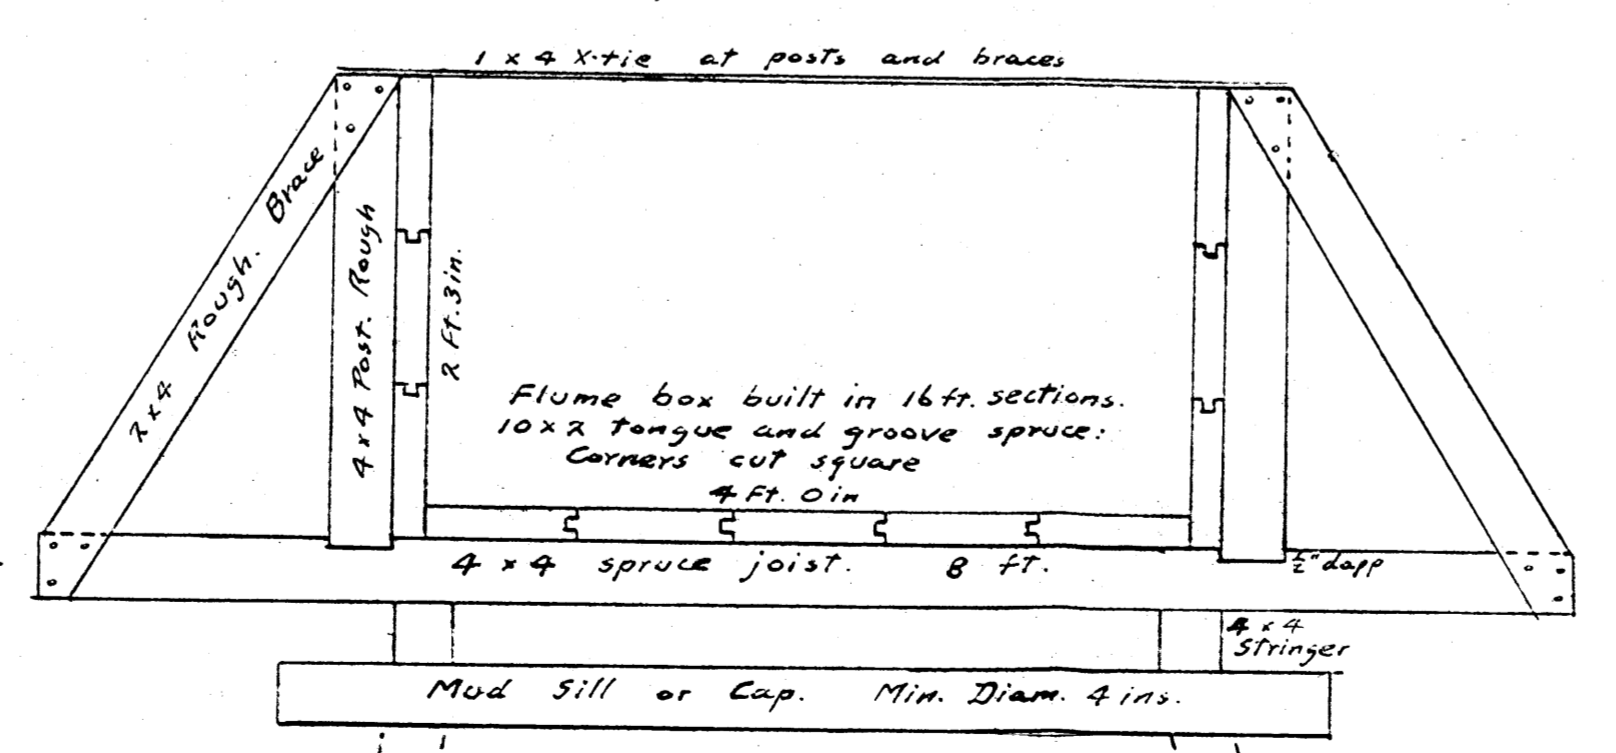 1 x 4 X-tie at posts and braces
2x4 Rough. Brace
4x4 Post. Rough
2 Ft. 3 in.
Flume box built in 16 ft. sections.
10 x 2 tongue and groove spruce:
Corners cut square
4 Ft. 0 in
4 x 4 spruce joist. 8 ft.
½" dapp
4 x 4
Stringer
Mud Sill or Cap. Min. Diam. 4 ins.